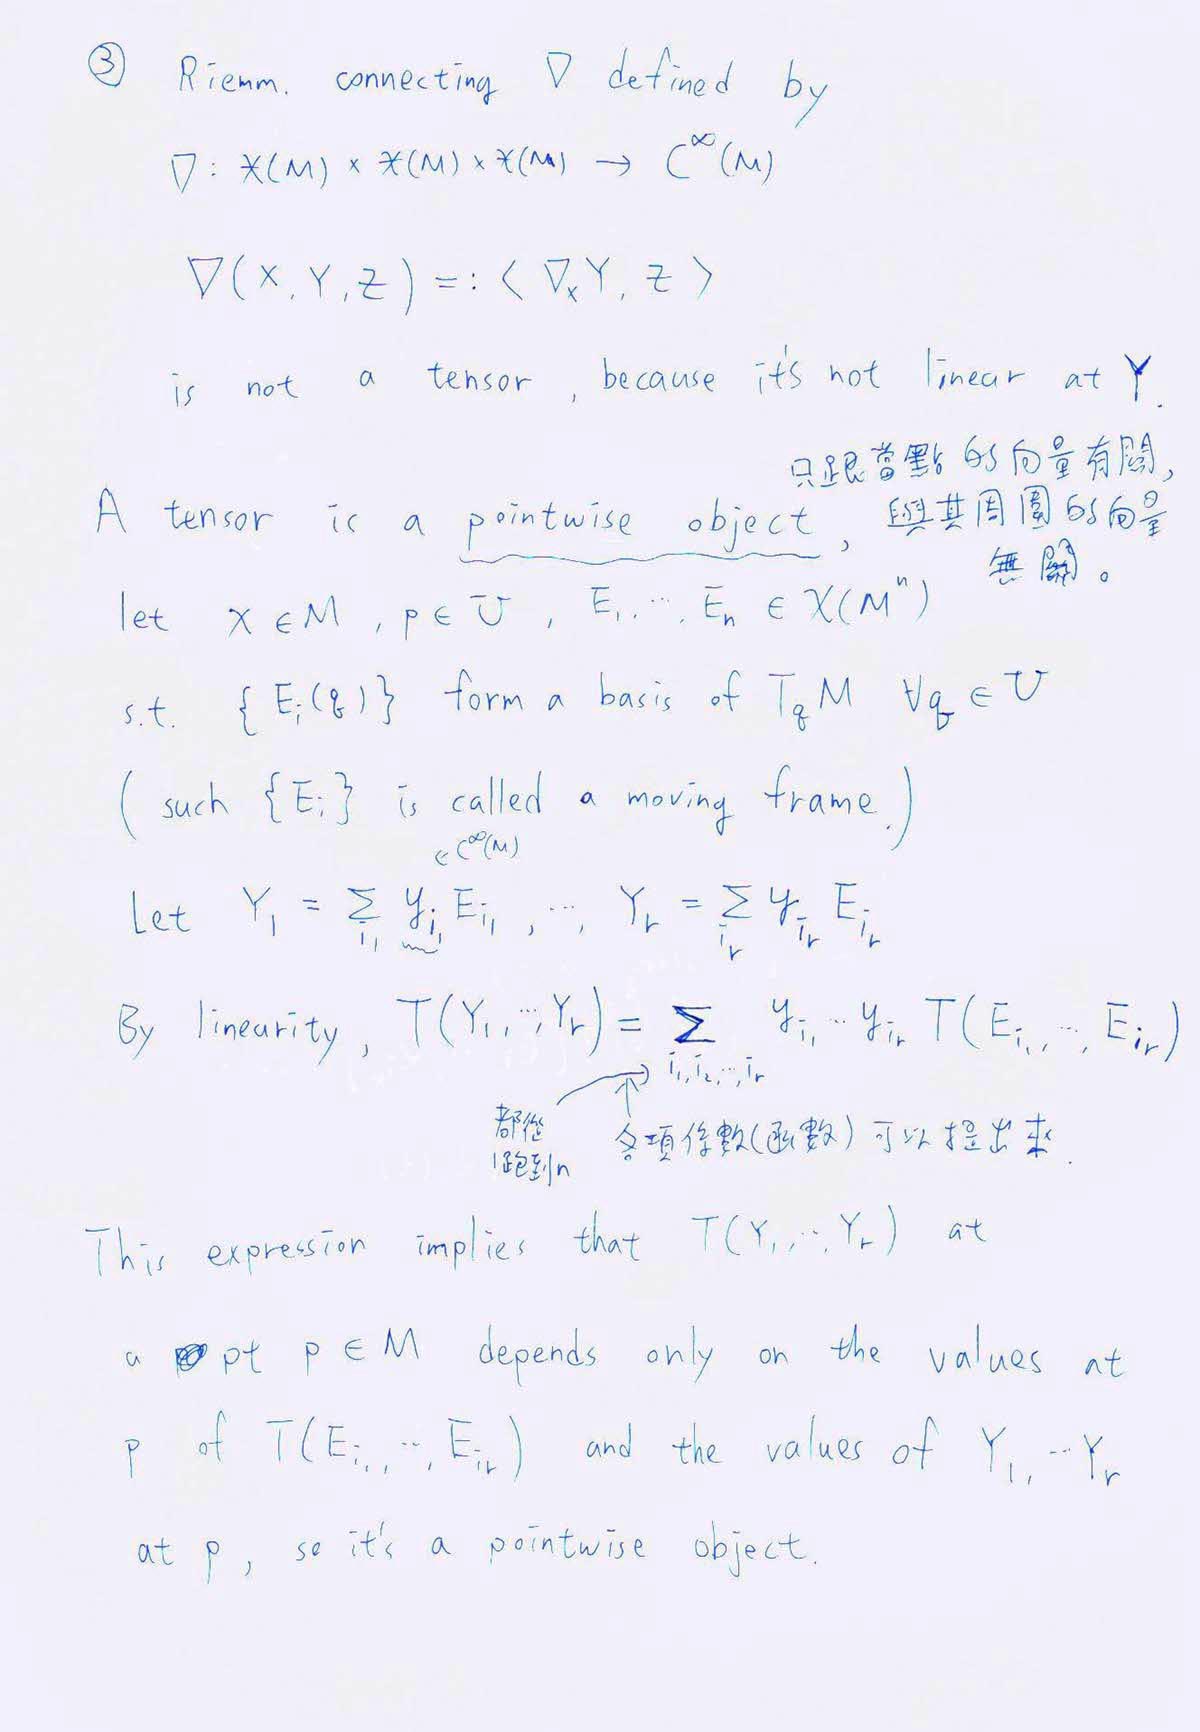 ③ Riemm. connecting ∇ defined by
∇: 𝔛(M) × 𝔛(M) × 𝔛(M) → C^∞(M)
∇(X, Y, Z) =: ⟨∇_X Y, Z⟩
is not a tensor, because it's not linear at Y.
只跟當點的向量有關,
A tensor is a pointwise object, 與其周圍的向量
無關。
let x ∈ M, p ∈ U, E_1, ..., E_n ∈ χ(M^n)
s.t. {E_i(q)} form a basis of T_q M ∀q ∈ U
(such {E_i} is called a moving frame.)
∈ C^∞(M)
Let Y_1 = Σ_{i_1} y_{i_1} E_{i_1}, ..., Y_r = Σ_{i_r} y_{i_r} E_{i_r}
By linearity, T(Y_1, ..., Y_r) = Σ_{i_1, i_2, ..., i_r} y_{i_1} ... y_{i_r} T(E_{i_1}, ..., E_{i_r})
都從
1跑到n
各項係數(函數)可以提出來.
This expression implies that T(Y_1, ..., Y_r) at
a pt p ∈ M depends only on the values at
p of T(E_{i_1}, ..., E_{i_r}) and the values of Y_1, ... Y_r
at p, so it's a pointwise object.